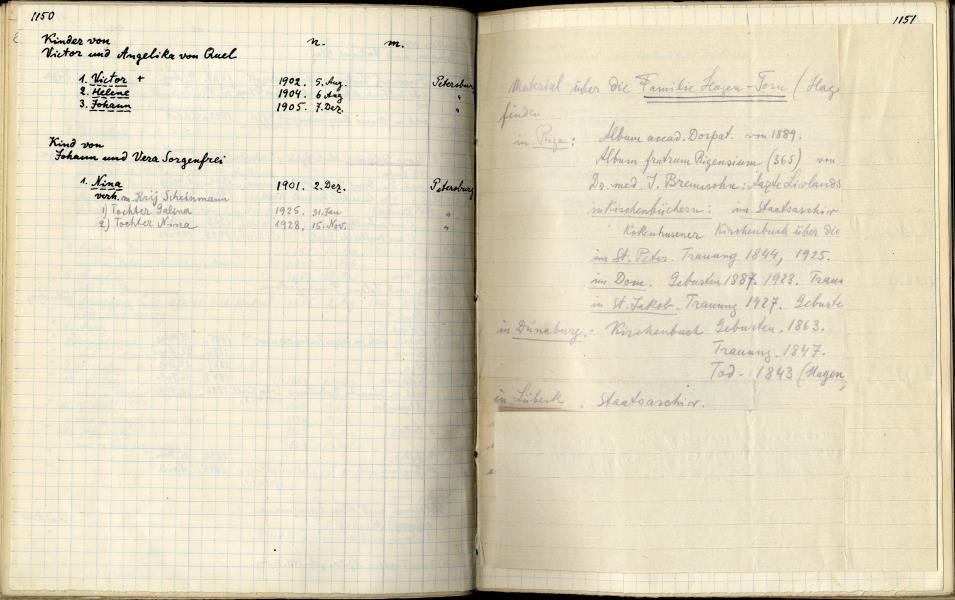 1150
Kinder von n. m.
Victor und Angelika von Quel
1. Victor + 1902. 5. Aug. Petersburg
2. Helene 1904. 6 Aug "
3. Johann 1905. 7. Dez. "
Kind von
Johann und Vera Sorgenfrei
1. Nina 1901. 2. Dez. Petersburg
verh. m. Scheinmann
1) Tochter Galina 1925. 31. Jan "
2) Tochter Nina 1928. 15. Nov. "
1151
Material über die Familie Hagen-Torn (Hag
finden
in Riga: Album accad. Dorpat. von 1889.
Album fratrum Rigensium (365) von
Dr. med. I. Brennsohn: Ärzte Livlands
in Kirchenbüchern: im Staatsarchiv
Kokenhusener Kirchenbuch über die
im St. Peter. Trauung 1844, 1925.
im Dom. Geburten 1887. 1923. Trau
in St. Jakob. Trauung 1927. Geburte
in Dünaburg: Kirchenbuch Geburten. 1863.
Trauung. 1847.
Tod - 1843 (Hagen,
in Lübeck : Staatsarchiv.